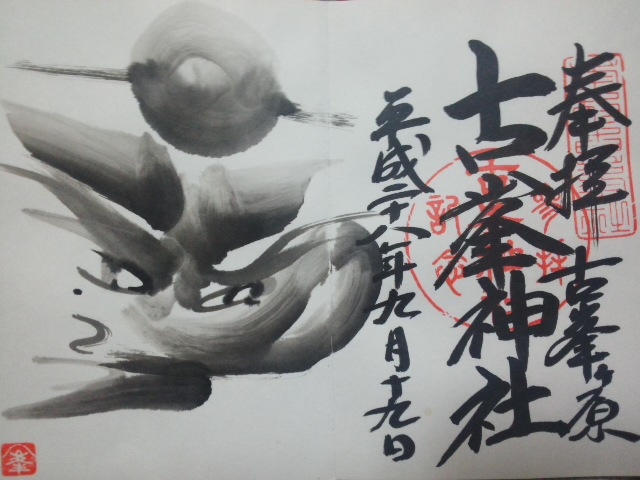 奉拝
古峯ヶ原
古峯神社
参拝記念
平成二十八年九月十九日
峯